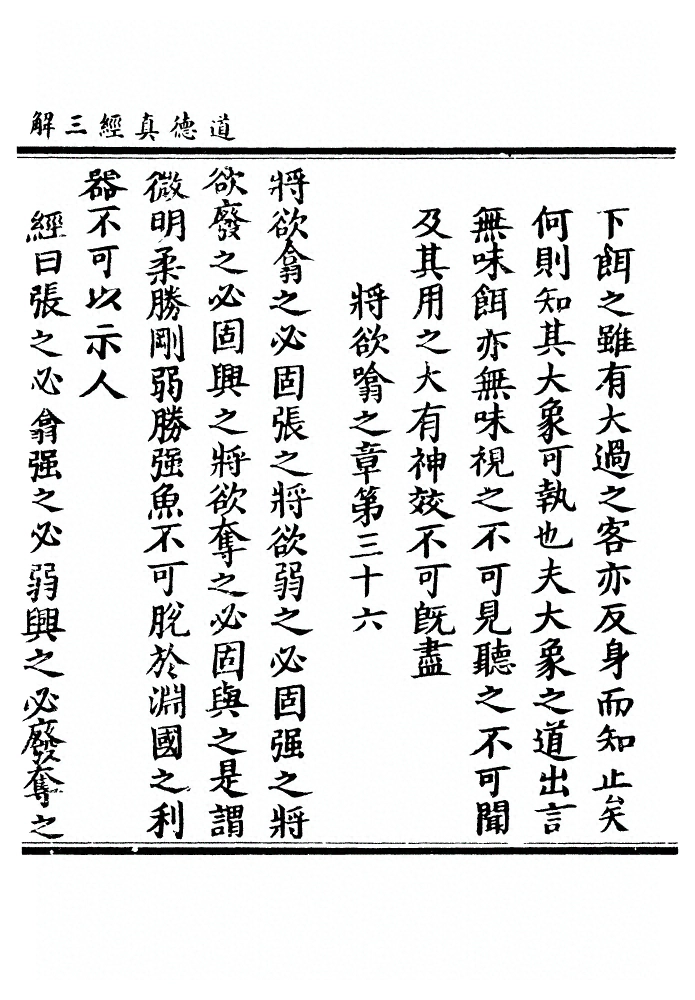 道德真經三解
下餌之雖有大過之客亦反身而知止矣
何則知其大象可執也夫大象之道出言
無味餌亦無味視之不可見聽之不可聞
及其用之大有神效不可旣盡
將欲噏之章第三十六
將欲翕之必固張之將欲弱之必固强之將
欲廢之必固興之將欲奪之必固與之是謂
微明柔勝剛弱勝强魚不可脫於淵國之利
器不可以示人
經曰張之必翕强之必弱興之必廢奪之